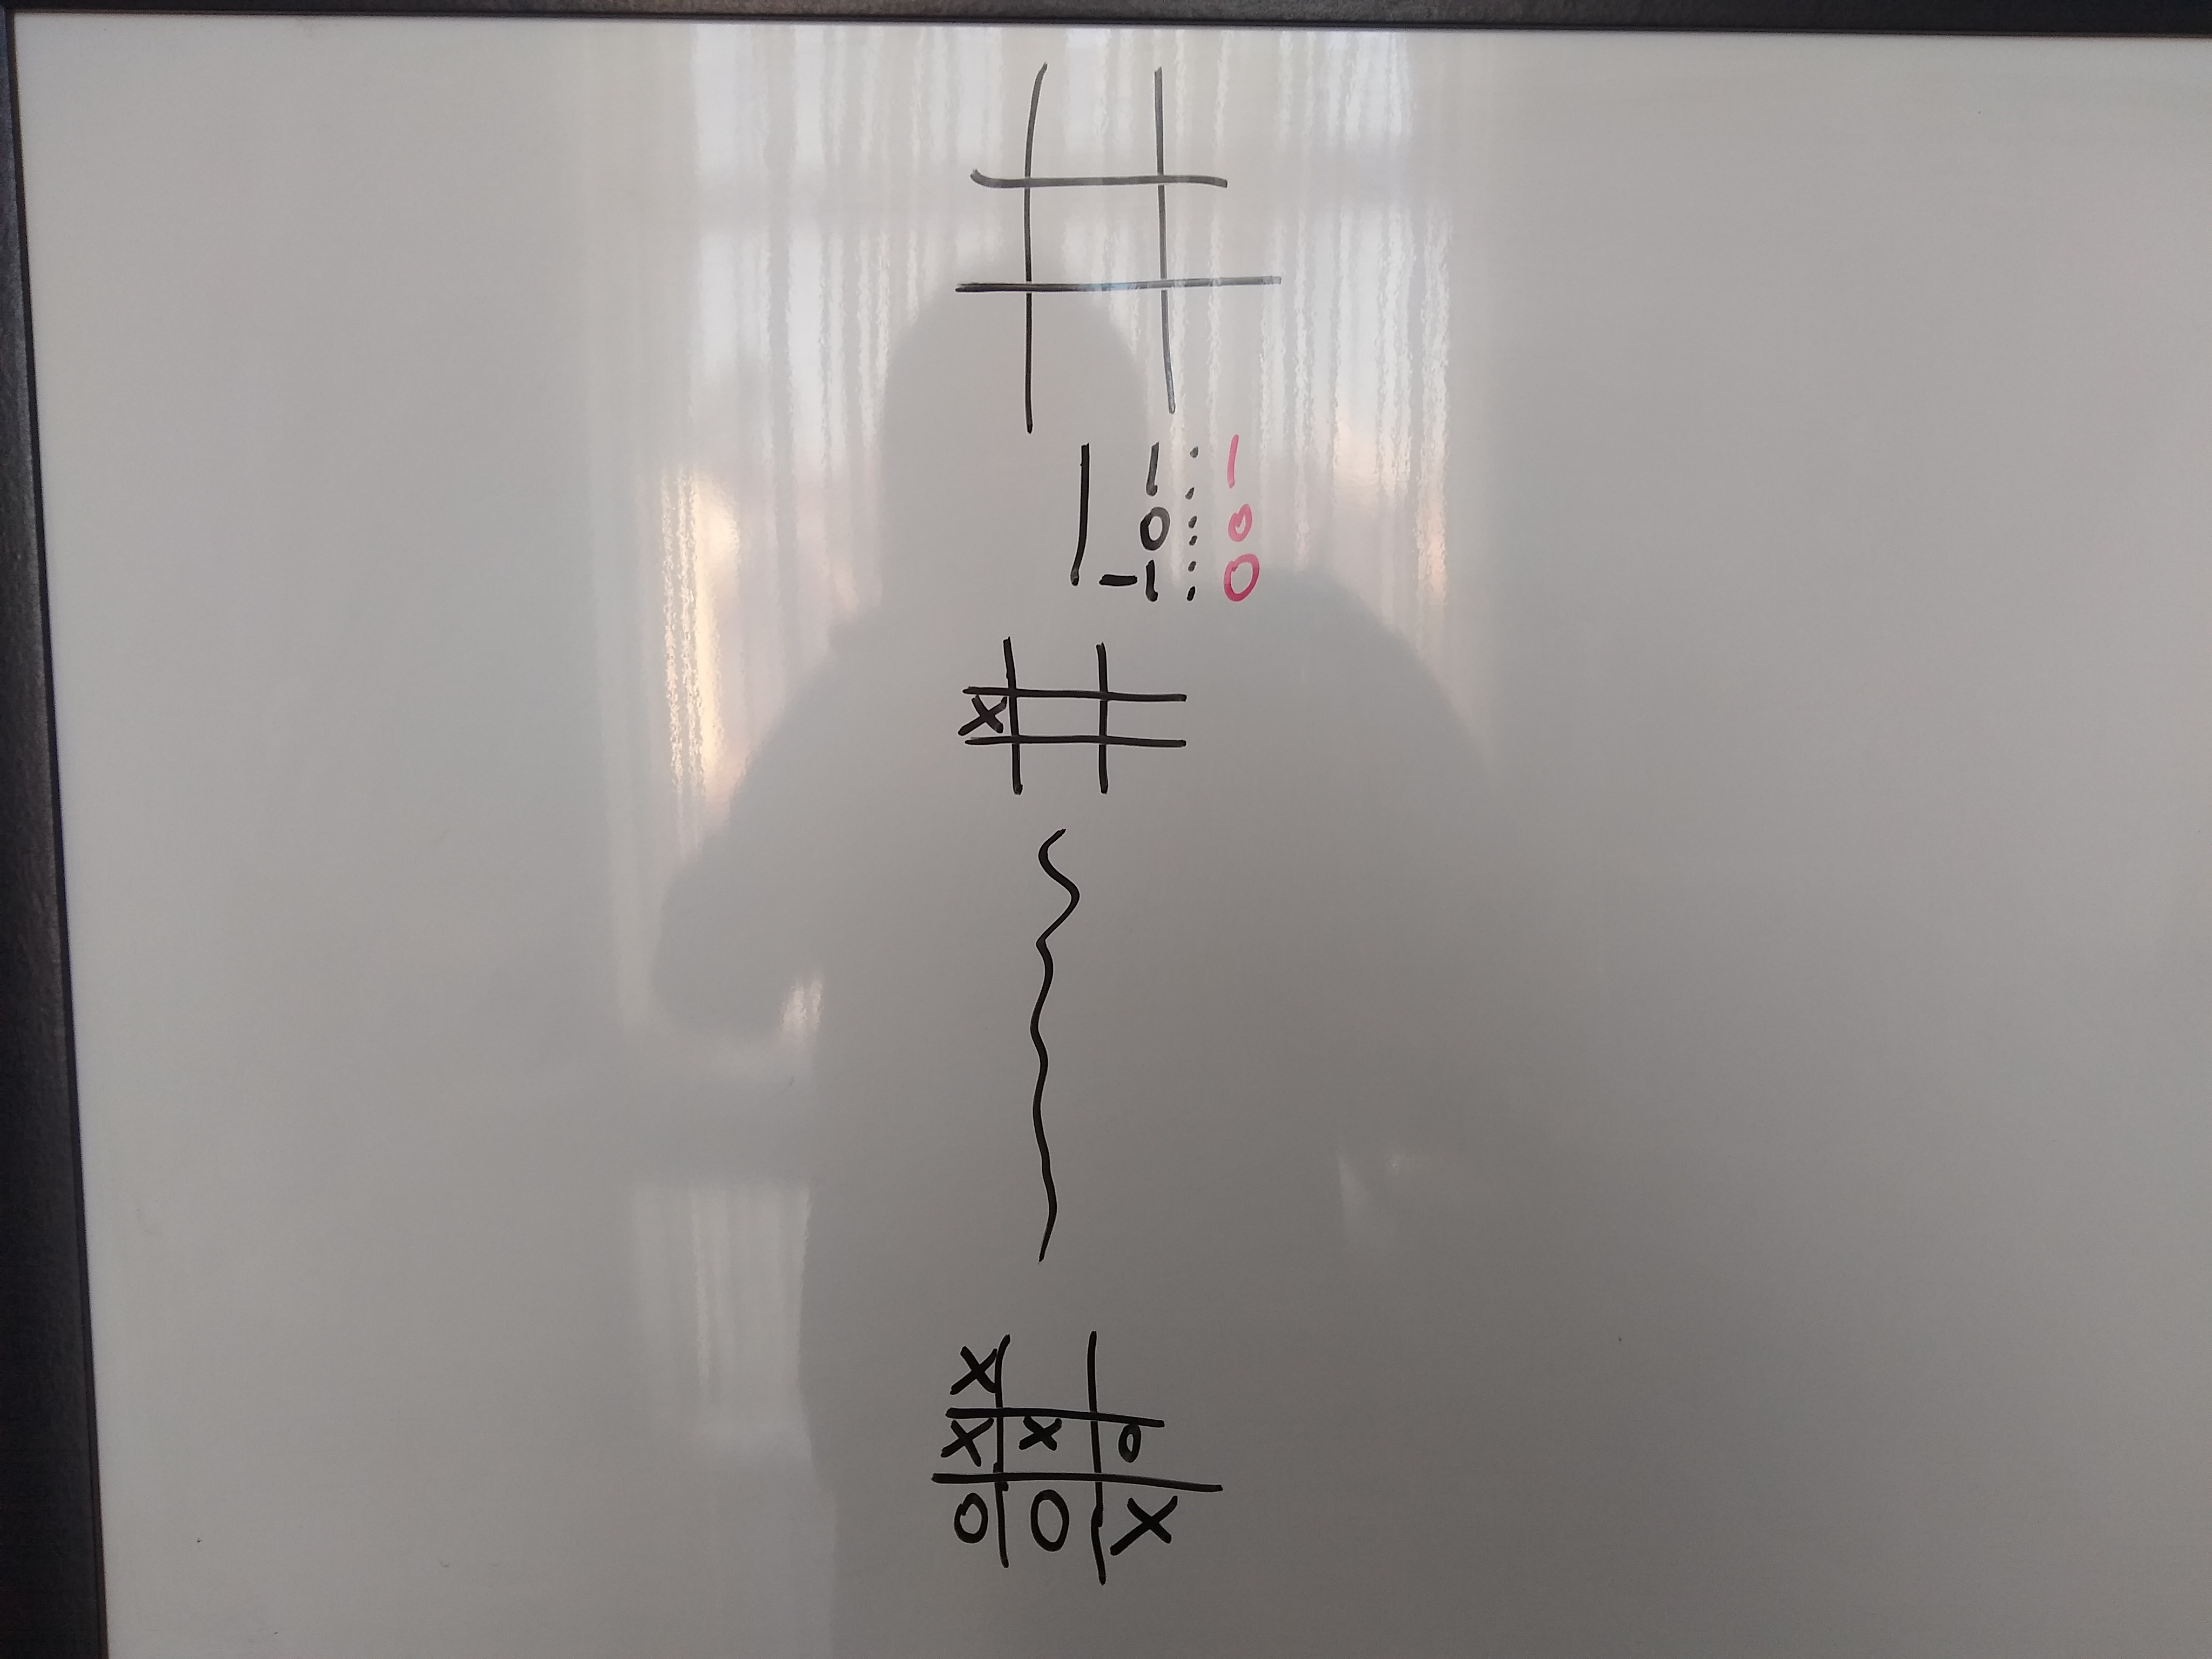 1 1
0 0
-1 0
X
X
X X O
O O X